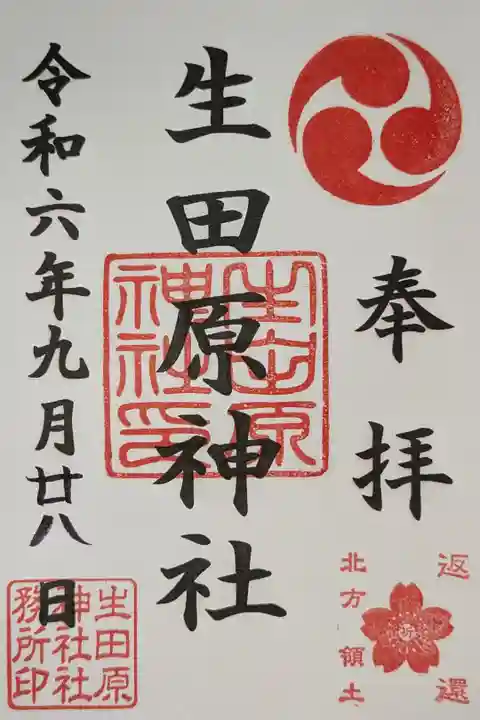 奉拝
返還
北方領土
生田原神社
生田原神社印
令和六年九月廿八日
生田原
神社社
務所印